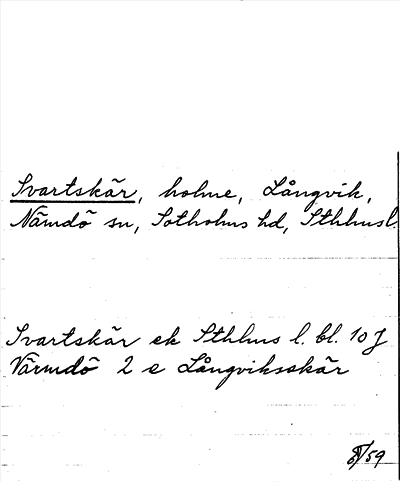 Svartskär, holme, Långvik,
Nämdö sn, Sotholms hd, Sthlmsl.
Svartskär ek Sthlms l. bl. 10 J
Värmdö 2 e Långviksskär
/59